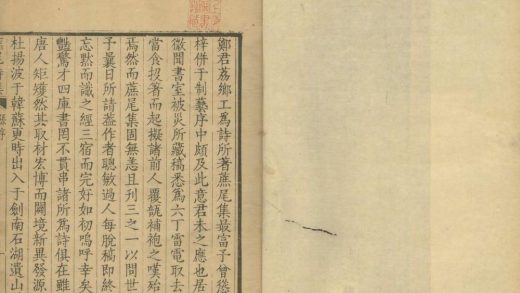 鄭君荔鄉工爲詩所著蔗尾集最富予曾慫
梓併于制藝序中頗及此意君未之應也居
微聞書室被災所藏稿悉爲六丁雷電取去
當食投箸而起擬諸前人覆瓿補袍之嘆殆
焉然而蔗尾集固無恙且刊三之一以問世
予曩日所請葢作者聰敏過人每脫稿即終
忘默而識之經三宿而完好如初嗚呼幸矣
豔驚才四庫書罔不貫串諸所爲詩俱在雖
唐人矩矱然其取材宏博而闢境新異發源
杜揚波于韓蘇更時出入于劍南石湖遺山